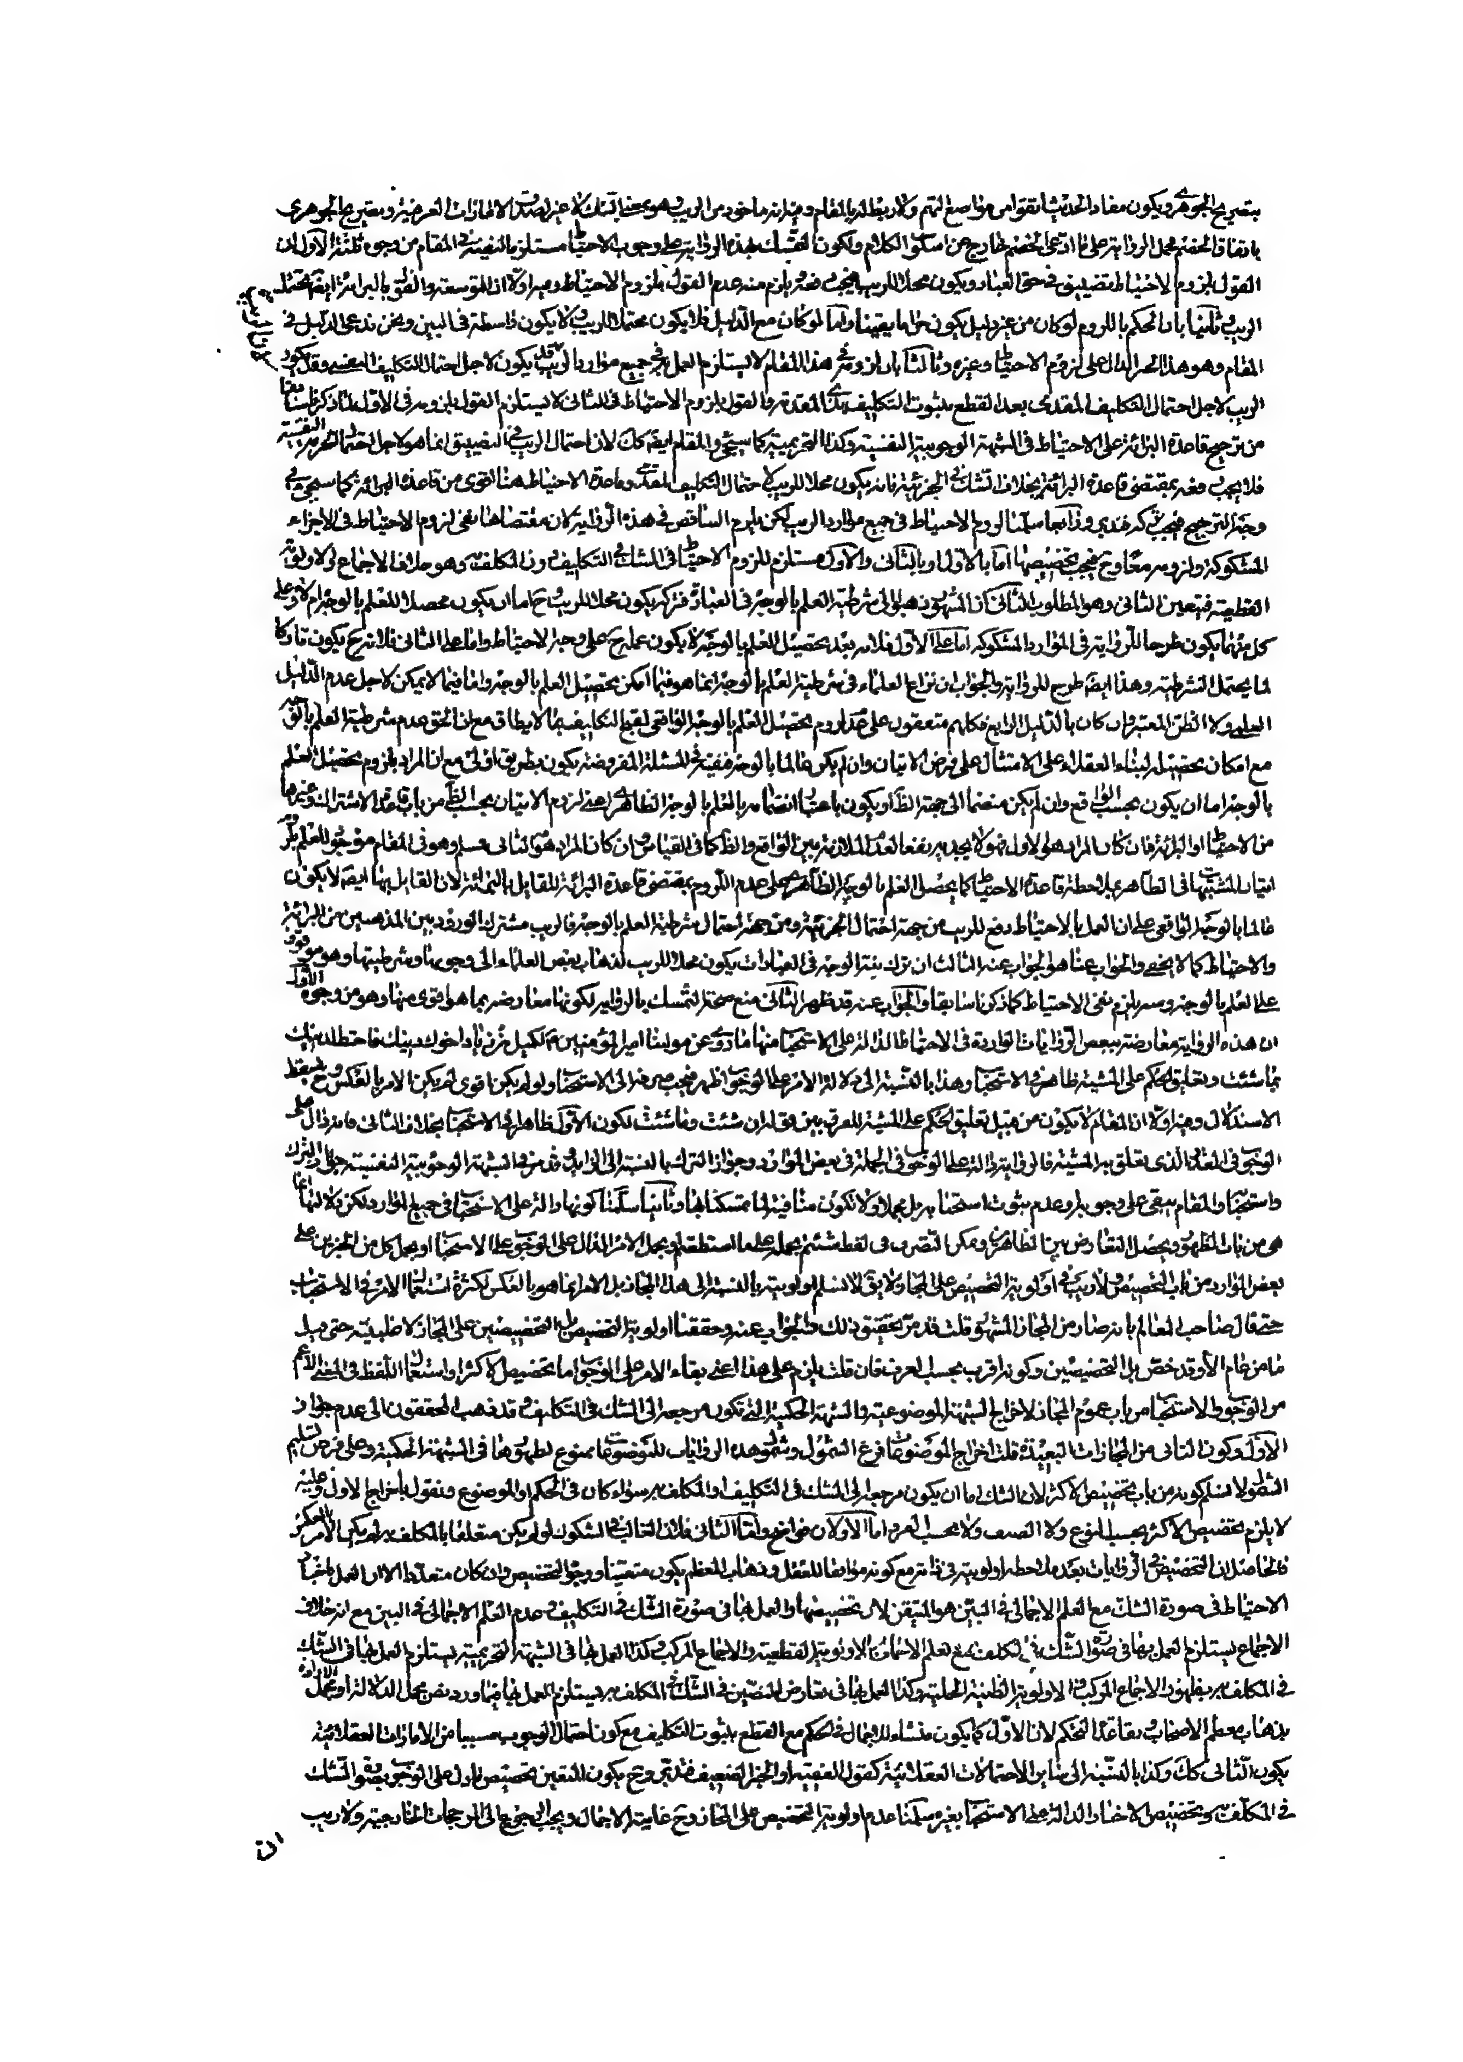 بتصريح الجوهرى ويكون مفاد الحديث اتقوا من مواضع التهم ولا ربط له بالمقام وفيه انه ماخوذ من الريب وهو بمعنى الشك لا غير لصدق الامارات العرفية وبتصريح الجوهرى
باتفاق الخصم فحمل الرواية على ما ادعى الخصم خارج عن اسلوب الكلام ولكون التمسك بهذه الرواية على وجوب الاحتياط مستلزما للنقيضين فى المقام من وجوه ثلثة الاول ان
القول بلزوم الاحتياط تضييق فى حق العباد ويكون محلا للريب فيجب دفعه فيلزم منه عدم القول بلزوم الاحتياط وفيه اولا ان للتوسعة والقول بالبرائة ايضا محتمل
الريب وثانيا بان الحكم باللزوم لو كان من غير دليل يكون حراما يقينا واما لو كان مع الدليل فلا يكون محتملا للريب ولا يكون واسطة فى البين ونحن ندعى الدليل فى
المقام وهو هذا الخبر الدال على لزوم الاحتياط وغيره وثالثا بان لزومه فى هذا المقام لا يستلزم العمل به فى جميع موارد الريب فقد يكون لاجل احتمال التكليف النفسى وقد يكون
الريب لاجل احتمال التكليف المقدمى بعد القطع بثبوت التكليف بذى المقدمة والقول بلزوم الاحتياط فى الثانى لا يستلزم القول بلزومه فى الاول لما ذكرنا سابقا
من ترجيح قاعدة البرائة على الاحتياط فى الشبهة الوجوبية النفسية وكذا التحريمية كما سيجئ والمقام ايضا كك لان احتمال الريب فى التضييق انما هو لاجل احتمال تحريمه النفسية
فلا يجب دفعه بمقتضى قاعدة البرائة بخلاف الشك فى الجزئية فانه يكون محلا للريب لاحتمال التكليف المقدمى وقاعدة الاحتياط هنا اقوى من قاعدة البرائة كما سيجئ فى
وجه الترجيح فيجب تركه عندى ورابعا سلمنا لزوم الاحتياط فى جميع موارد الريب لكن يلزم التناقض فى هذه الرواية لان مقتضاها نفى لزوم الاحتياط فى الاجزاء
المشكوكة ولزومه معا وح فيجب تخصيصها اما بالاول او بالثانى والاول مستلزم للزوم الاحتياط فى الشك فى التكليف دون المكلف به وهو خلاف الاجماع والاولوية
القطعية فيتعين الثانى وهو المطلوب الثانى ان المشهور ذهبوا الى شرطية العلم بالوجه فى العبادة فتركه يكون محلا للريب وح اما ان يكون محصلا للعلم بالوجه ام لا وعلى
كل منهما يكون طرحا للرواية فى الموارد المشكوكة اما على الاول فلانه بعد تحصيل العلم بالوجه لا يكون عمله ح على وجه الاحتياط واما على الثانى فلانه ح يكون تاركا
لما يحتمل الشرطية وهذا ايضا طرح للرواية والجواب ان نزاع العلماء فى شرطية العلم بالوجه انما هو فيما امكن تحصيل العلم بالوجه واما فيما لا يمكن لاجل عدم الدليل
العلمى ولا الظن المعتبر وان كان بالدليل الرابع فكلهم متفقون على عدم لزوم تحصيل العلم بالوجه الواقعى لقبح التكليف بما لا يطاق مع ان الحق عدم شرطية العلم بالوجه
مع امكان تحصيله لبناء العقلاء على الامتثال على فرض الاتيان وان لم يكن عالما بالوجه ففيه فى المسئلة المفروضة يكون بطريق اولى مع ان المراد بلزوم تحصيل العلم
بالوجه اما ان يكون بحسب الواقع وان لم يكن منضما الى جهة الظاهر او يكون باعتبار انضمامه بالعلم بالوجه الظاهرى اعنى لزوم الاتيان بحسب الظاهر من باب قاعدة الاشتراك وغيرها
من الاحتياط او البرائة فان كان المراد هو الاول فهو لا يجديه نفعا لعدم الملازمة بين الواقع والظاهر كما فى القياس وان كان المراد هو الثانى فمسلم وهو فى المقام موجود للعلم بلزوم
اتيان المشتبهات فى الظاهر بملاحظة قاعدة الاحتياط كما يحصل العلم بالوجه الظاهرى على عدم اللزوم بمقتضى قاعدة البرائة للقايل بالبرائة لان القايل بها ايضا لا يكون
عالما بالوجه الواقعى على ان العمل بالاحتياط دفع للريب من جهة احتمال الجزئية ومن جهة احتمال شرطية العلم بالوجه فالريب مشترك الورود بين المذهبين من البرائة
والاحتياط كما لا يخفى والجواب عنها هو الجواب عنه الثالث ان ترك نية الوجه فى العبادات يكون محلا للريب لذهاب بعض العلماء الى وجوبها وشرطيتها وهو موقوف
على العلم بالوجه ومنه يلزم نفى الاحتياط كما ذكرنا سابقا والجواب عنه قد ظهر الثانى منع صحة التمسك بالرواية لكونها معارضة بما هو اقوى منها وهو من وجوه الاول
ان هذه الرواية معارضة ببعض الروايات الواردة فى الاحتياط الدالة على الاستحباب منها ما روى عن مولينا امير المؤمنين ع لكميل بن زياد اخوك دينك فاحتط لدينك
بما شئت وتعليق الحكم على المشية ظاهر فى الاستحباب وهذا بالنسبة الى دلالة الامر على الوجوب اظهر فيجب صرفه الى الاستحباب ولو لم يكن اقوى لم يكن الامر بالعكس وح يسقط
الاستدلال وفيه اولا ان المقام لا يكون من قبيل تعليق الحكم على المشية للفرق بين قوله ان شئت وما شئت لكون الاول ظاهرا فى الاستحباب بخلاف الثانى فانه دال على
الوجوب فى المقدار الذى تعلق به المشية فالرواية دالة على الوجوب فى الجملة فى بعض الموارد وجواز الترك بالنسبة الى الزايد وقد مر فى الشبهة الوجوبية النفسية جواز الترك
واستحبابه والمقام يبقى على وجوبه او عدم ثبوت استحبابه بل مجملا ولا تكون منافية لما تمسكنا بها وثانيا سلمنا كونها دالة على الاستحباب فى جميع الموارد ولكن دلالتها انما
هى من باب الظهور ويحصل التعارض بين الظاهرين ويمكن التصرف فى لفظ شئت بحمله على ما استطعتم ويحمل الامر الدال على الوجوب على الاستحباب او يحمل كل من الخبرين على
بعض الموارد من باب التخصيص ولا ريب فى اولوية التخصيص على المجاز ولا يق لا نسلم اولويته بالنسبة الى هذا المجاز بل الامر انما هو بالعكس لكثرة استعمال الامر فى الاستحباب
حتى قال صاحب المعالم بانه صار من المجاز المشهور قلت قد مر تحقيق ذلك والجواب عنه وحققنا اولوية التخصيص بل التخصيصين على المجاز لاغلبيته حتى قيل
ما من عام الا وقد خص بل التخصيصين وكونه اقرب بحسب العرف فان قلت يلزم على هذا اعنى بقاء الامر على الوجوب اما تخصيص الاكثر او استعمال اللفظ فى المعنى الاعم
من الوجوب والاستحباب من باب عموم المجاز لاخراج الشبهة الموضوعية والشبهة الحكمية التى تكون مرجعه الى الشك فى التكليف وقد ذهب المحققون الى عدم جواز
الاول وكون الثانى من المجازات البعيدة قلت اخراج الموضوعات فرع الشمول وشمول هذه الروايات للموضوعات ممنوع لظهورها فى الشبهة الحكمية وعلى فرض تسليم
الشمول لا نسلم كونه من باب تخصيص الاكثر لان الشك اما ان يكون مرجعه الى الشك فى التكليف او المكلف به سواء كان فى الحكم او الموضوع ونقول باخراج الاول وعليه
لا يلزم تخصيص الاكثر بحسب النوع ولا الصنف ولا بحسب الفرد اما الاولان فواضح واما الثانى فلان الغالب فى الشكوك لو لم يكن متعلقا بالمكلف به لم يكن الامر بالعكس
فالحاصل ان التخصيص فى الروايات بعد ملاحظة اولويته فى ذاته مع كونه موافقا للعقل وذهاب المعظم يكون متعينا ووجوه التخصيص وان كان متعددا الا ان العمل باخبار
الاحتياط فى صورة الشك مع العلم الاجمالى فى البين هو المتيقن لان تخصيصها والعمل بها فى صورة الشك فى التكليف وعدم العلم الاجمالى فى البين مع انه خلاف
الاجماع يستلزم العمل بها فى صورة الشك فى المكلف به مع العلم الاجمالى بالاولوية القطعية والاجماع المركب وكذا العمل بها فى الشبهة التحريمية يستلزم العمل بها فى الشك
فى المكلف به بظهور الاجماع المركب والاولوية الظنية الجلية وكذا العمل بها فى تعارض النصين فى الشك فى المكلف به يستلزم العمل بها فيما ورد نص مجمل الدلالة او مجمل الارادة
بذهاب معظم الاصحاب وبقاعدة التحكم لان الاول كما يكون منشاء للاجمال فى الحكم مع القطع بثبوت التكليف مع كون احتمال الوجوب مسببا من الامارات العقلائية
يكون الثانى كك وكذا بالنسبة الى سائر الاحتمالات العقلائية كقول الفقيه او الخبر الضعيف فتدبر وح يكون المتعين تخصيص ما دل على الوجوب بصورة الشك
فى المكلف به وتخصيص الاخبار الدالة على الاستحباب بغيره سلمنا عدم اولوية التخصيص على المجاز وح غايته الاجمال ويجب الرجوع الى المرجحات الخارجية ولا ريب
ان